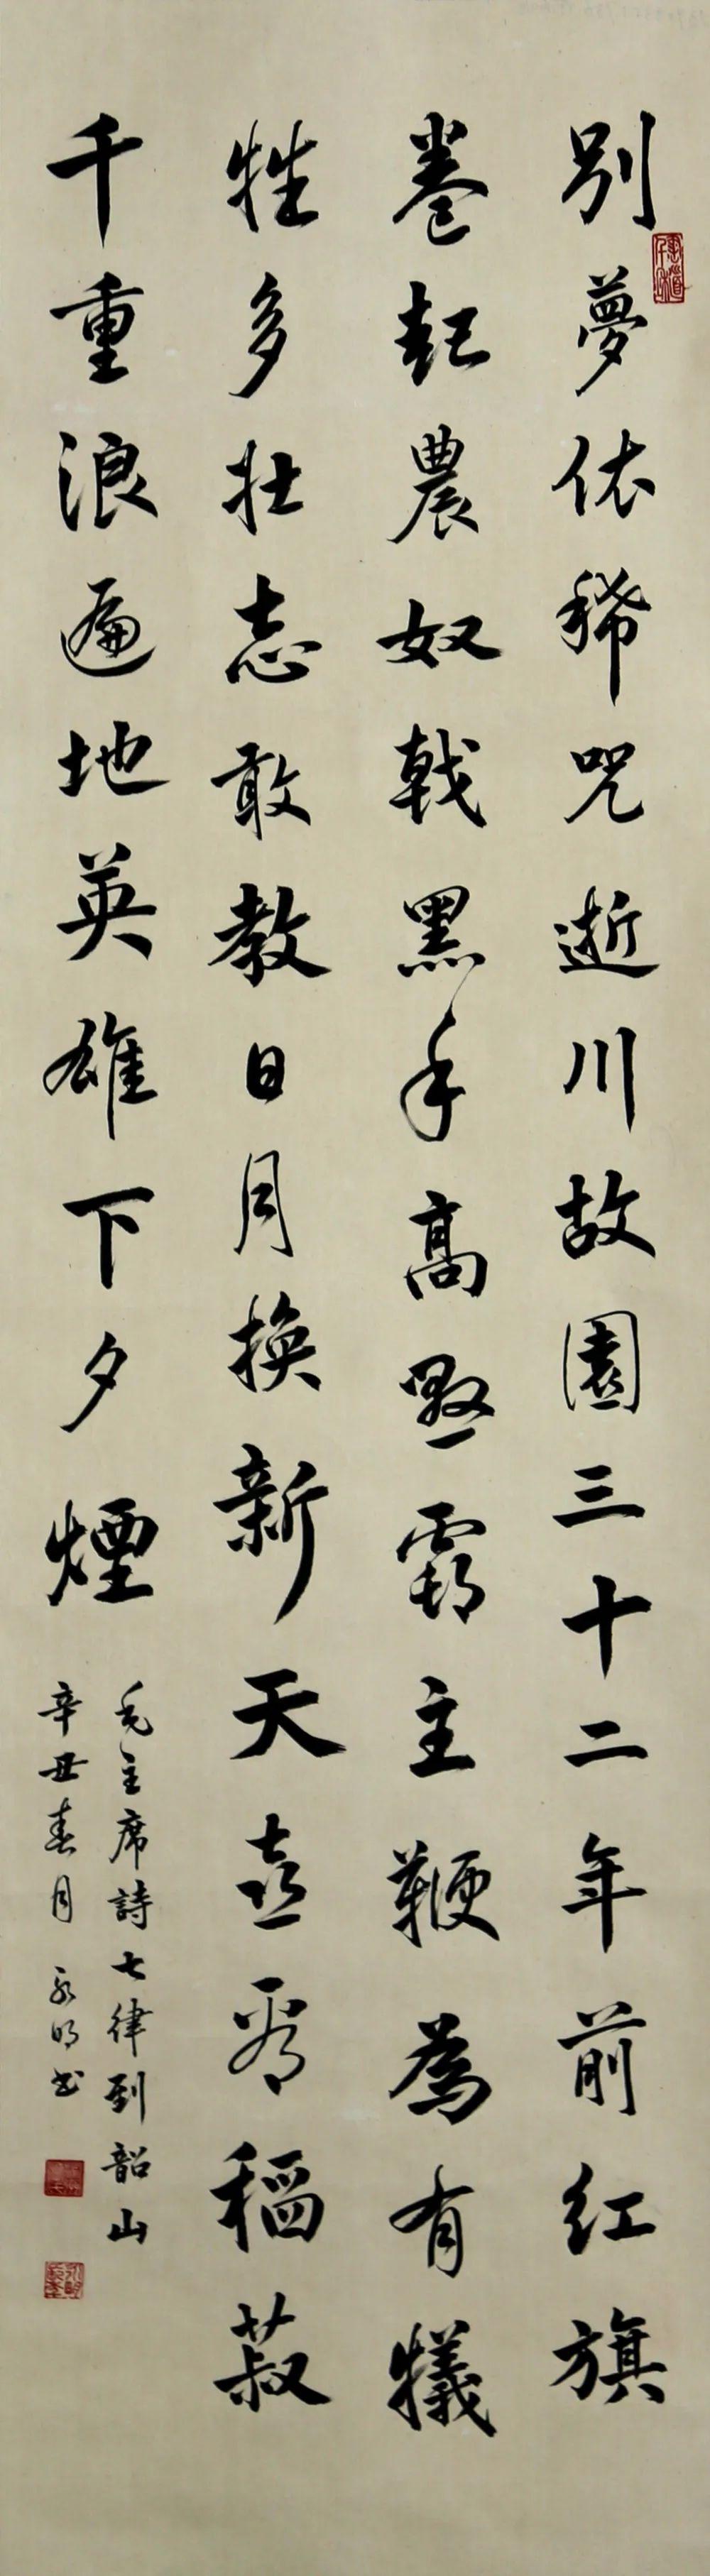 别夢依稀咒逝川故園三十二年前红旗
卷起農奴戟黑手高懸霸主鞭為有犧
牲多壮志敢教日月换新天喜看稻菽
千重浪遍地英雄下夕煙
毛主席詩七律到韶山
辛丑春月 永明书